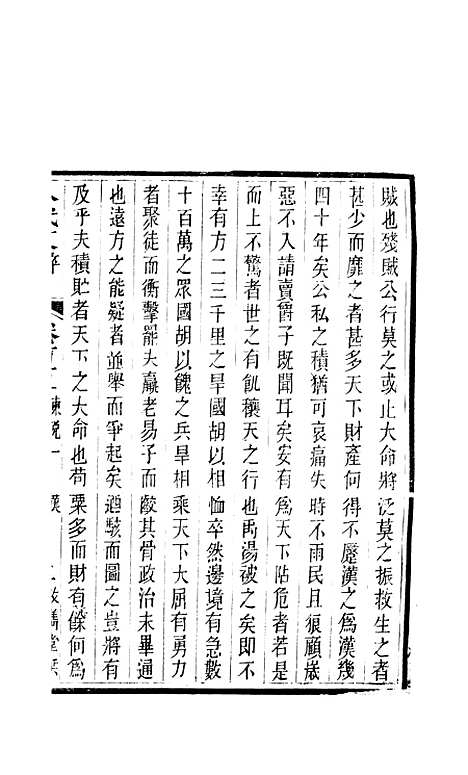 賊也殘賊公行莫之或止大命將泛莫之振救生之者
甚少而靡之者甚多天下財產何得不蹷漢之爲漢幾
四十年矣公私之積猶可哀痛失時不雨民且狼顧歲
惡不入請賣爵子旣聞耳矣安有爲天下阽危者若是
而上不驚者世之有飢穰天之行也禹湯被之矣即不
幸有方二三千里之旱國胡以相恤卒然邊境有急數
十百萬之眾國胡以餽之兵旱相乘天下大屈有勇力
者聚徒而衡擊罷夫羸老易子而齩其骨政治未畢通
也遠方之能疑者並舉而爭起矣迺駭而圖之豈將有
及乎夫積貯者天下之大命也苟粟多而財有餘何爲